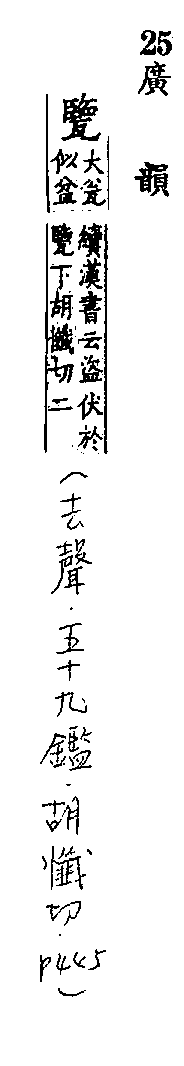 25廣韻
㽉大瓮似盆續漢書云盜伏於㽉下胡懺切二(去聲.五十九鑑.胡懺切.p445)